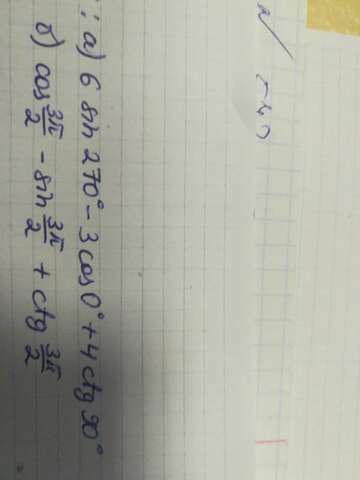 : а) 6 sin 270° - 3 cos 0° + 4 ctg 90°
б) cos 3π/2 - sin 3π/2 + ctg 3π/2